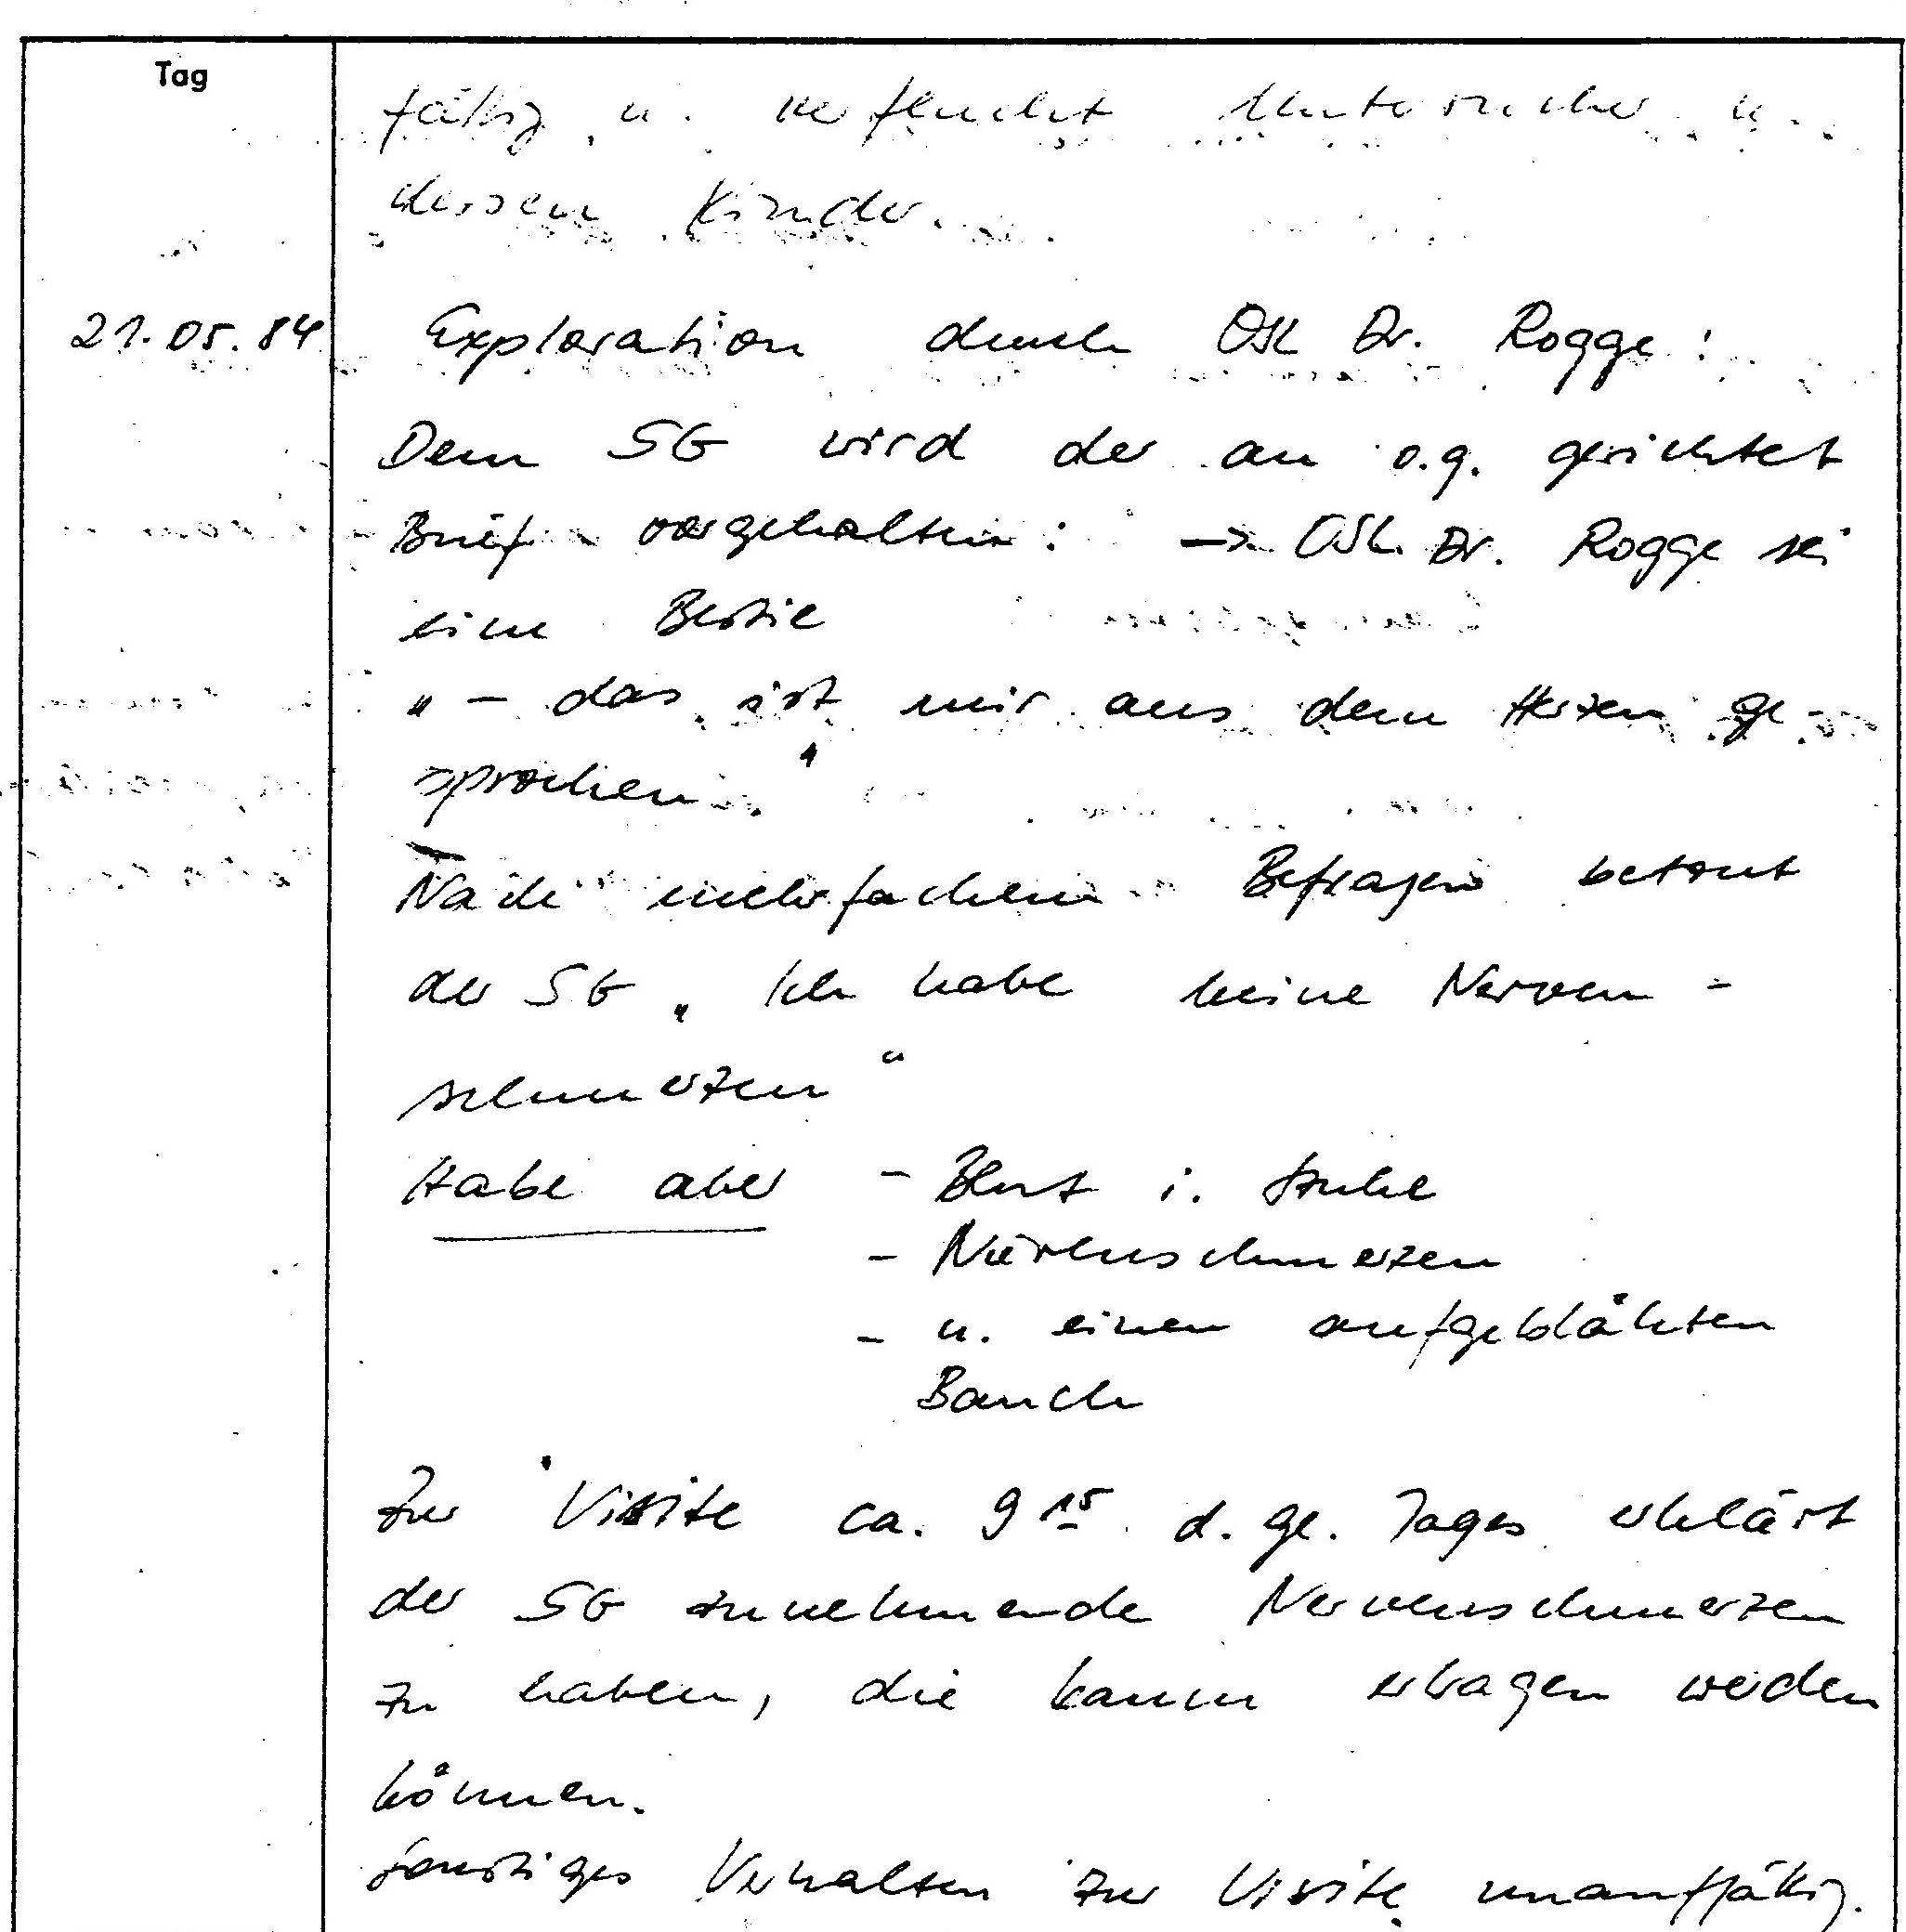 Tag
fällig u. verflucht Untersucher u.
dessen Kinder.
21.05.84 Exploration durch OSL Dr. Rogge:
Dem SG wird der an o.g. gerichtet
Brief vorgehalten: -> OSL Dr. Rogge sei
eine Bestie
„ - das ist mir aus dem Herzen ge-
sprochen."
Nach mehrfachem Befragen betont
der SG „Ich habe keine Nerven-
schmerzen"
Habe aber - Blut i. Stuhl
- Nierenschmerzen
- u. einen aufgeblähten
Bauch
Zur Visite ca. 9 15 d. gl. Tages erklärt
der SG zunehmende Nervenschmerzen
zu haben, die kaum ertragen werden
können.
sonstiges Verhalten zur Visite unauffällig.